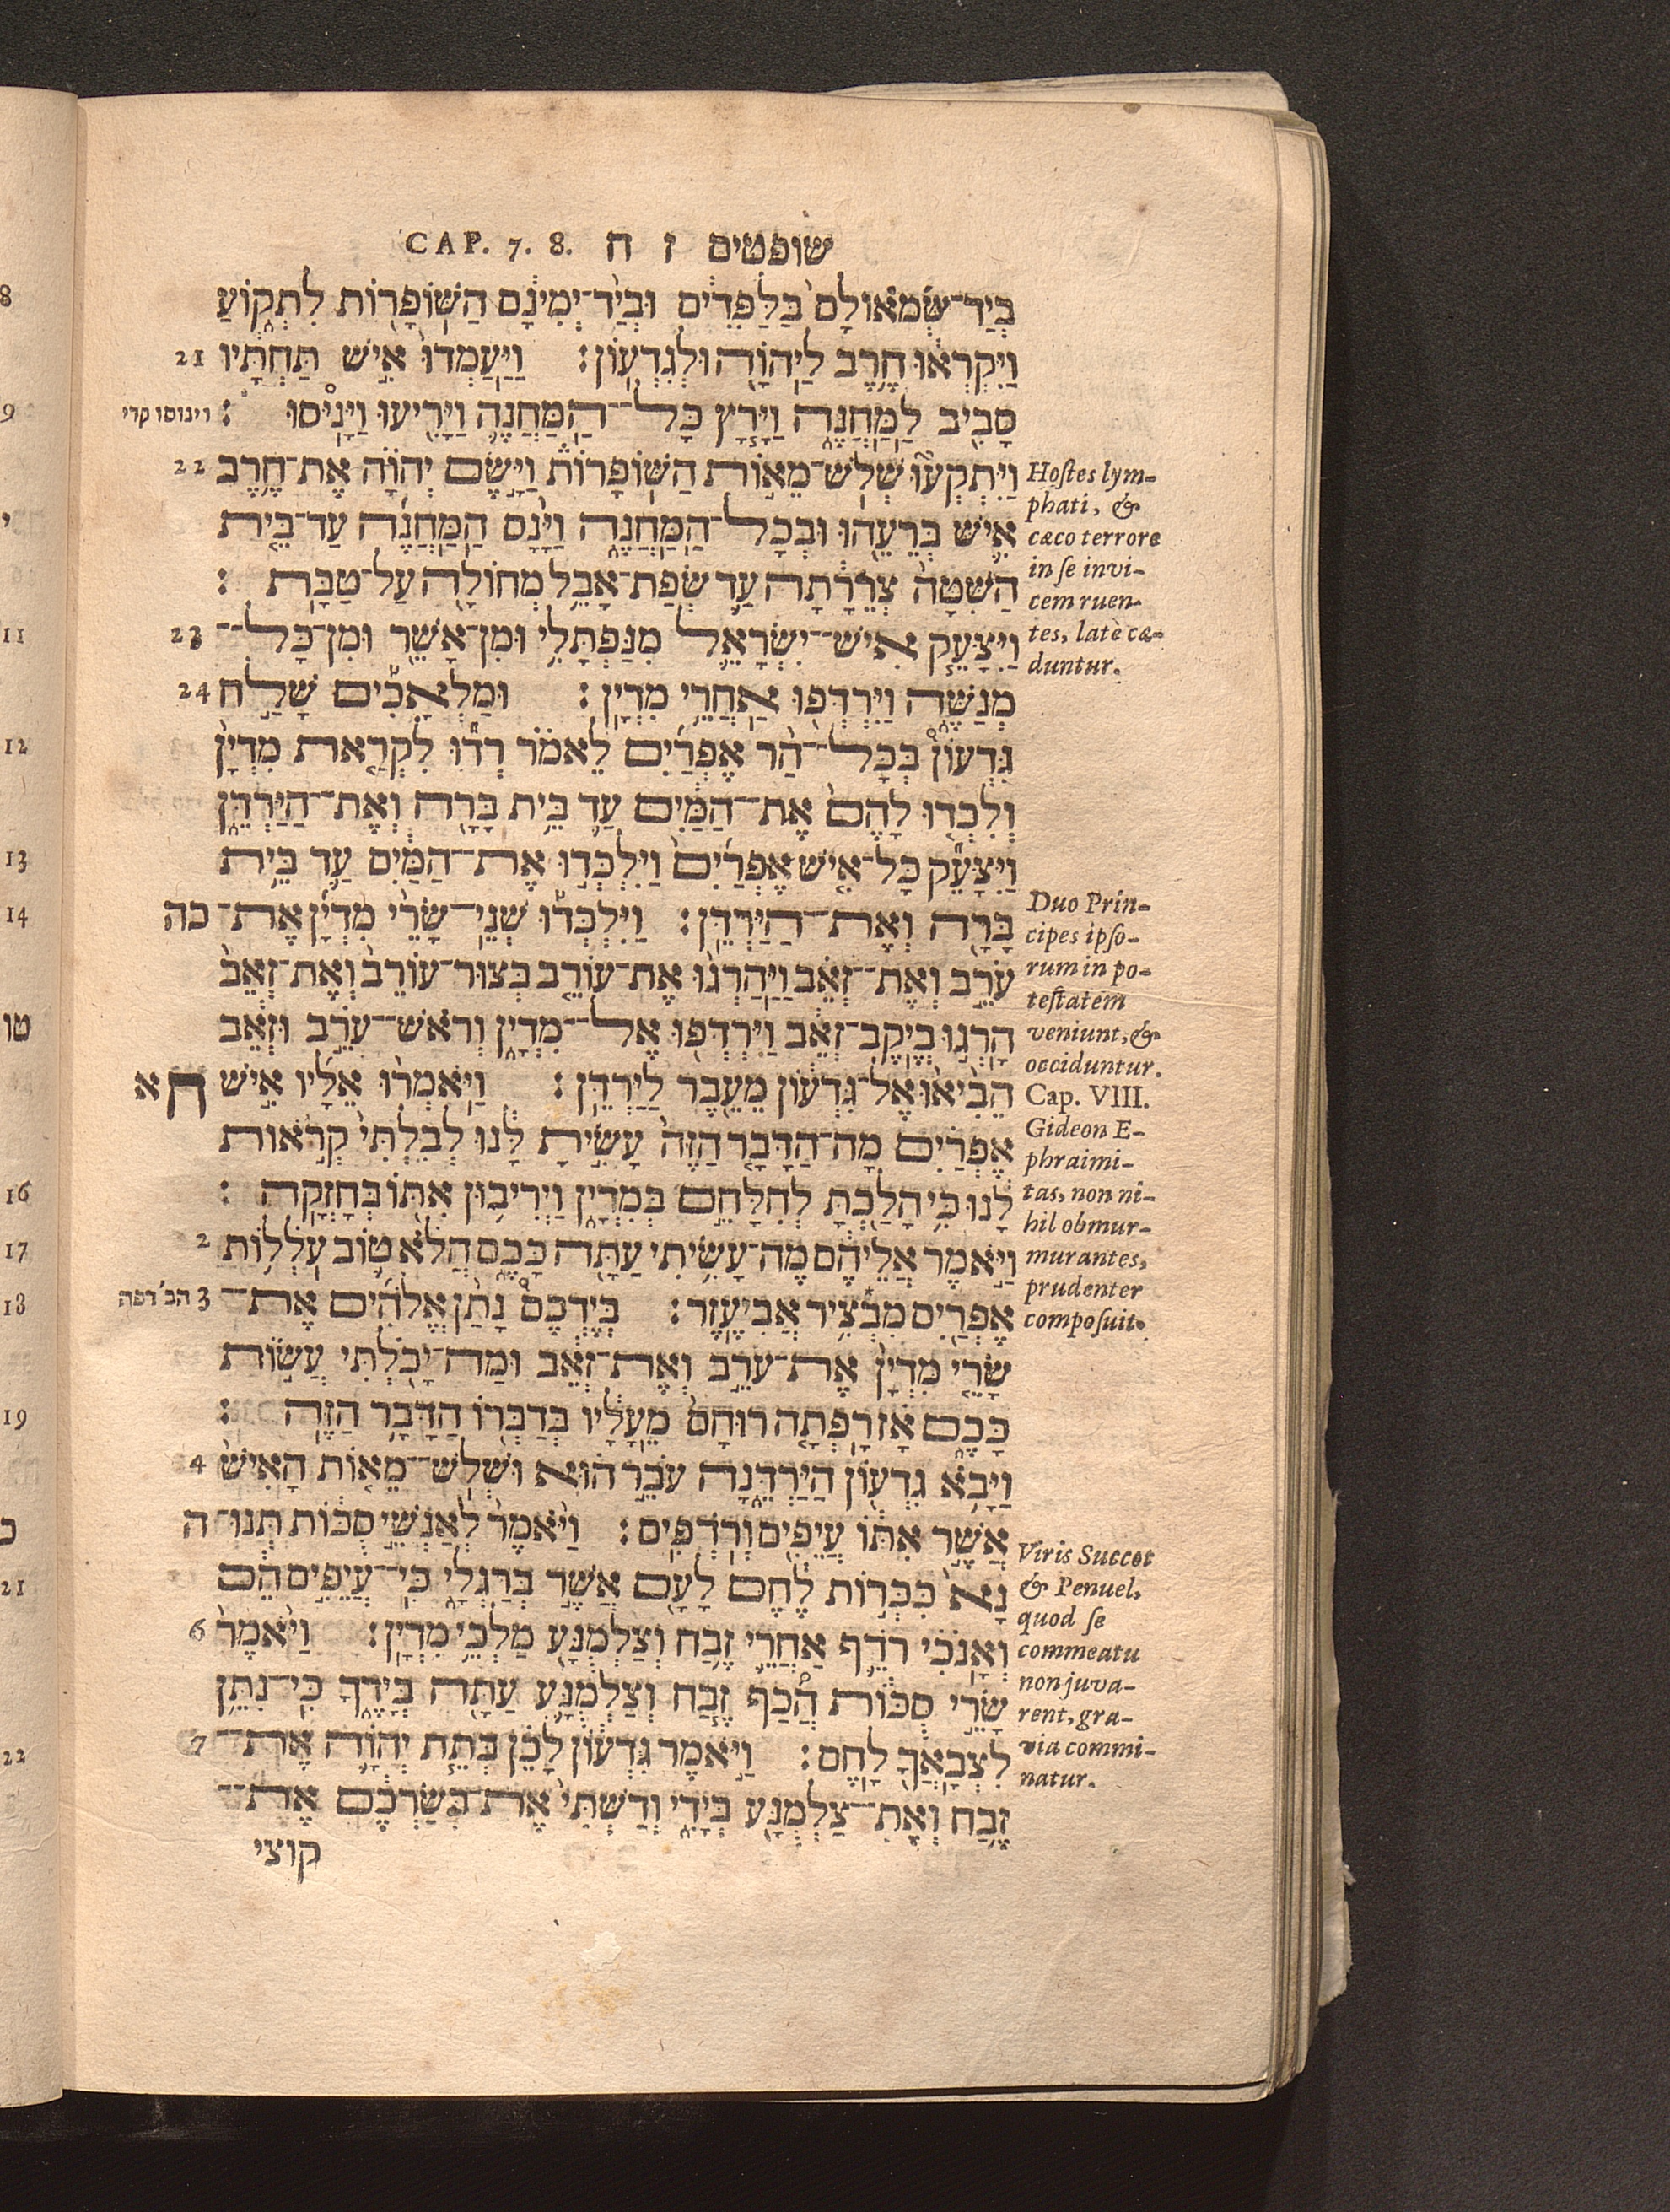 CAP. 7. 8. שופטים ז ח
בְּיַד־שְׂמֹאולָם֙ בַּלַּפִּדִ֔ים וּבְיַ֨ד־יְמִינָ֔ם הַשּׁוֹפָר֖וֹת לִתְק֑וֹעַ
וַֽיִּקְרְא֔וּ חֶ֥רֶב לַֽיהֹוָ֖ה וּלְגִדְעֽוֹן׃ וַיַּֽעַמְדוּ֙ אִ֣ישׁ תַּחְתָּ֔יו 21
סָבִ֖יב לַֽמַּחֲנֶ֑ה וַיָּ֧רׇץ כׇּל־הַֽמַּחֲנֶ֛ה וַיָּרִ֖יעוּ וַיָּנִֽיסוּ׃ וינוסו קרי
וַֽיִּתְקְעוּ֮ שְׁלֹשׁ־מֵא֣וֹת הַשּֽׁוֹפָרוֹת֒ וַיָּ֣שֶׂם יְהֹוָ֗ה אֶת־חֶ֥רֶב 22
אִ֛ישׁ בְּרֵעֵ֖הוּ וּבְכׇל־הַֽמַּחֲנֶ֑ה וַיָּ֨נׇס הַֽמַּחֲנֶ֜ה עַד־בֵּ֤ית
הַשִּׁטָּה֙ צְֽרֵרָ֔תָה עַ֛ד שְׂפַת־אָבֵ֥ל מְחוֹלָ֖ה עַל־טַבָּֽת׃
וַיִּצָּעֵ֧ק אִֽישׁ־יִשְׂרָאֵ֛ל מִנַּפְתָּלִ֥י וּמִן־אָשֵׁ֖ר וּמִן־כׇּל־ 23
מְנַשֶּׁ֑ה וַֽיִּרְדְּפ֖וּ אַחֲרֵ֥י מִדְיָֽן׃ וּמַלְאָכִ֡ים שָׁלַ֣ח 24
גִּדְעוֹן֩ בְּכׇל־הַ֨ר אֶפְרַ֜יִם לֵאמֹ֗ר רְד֞וּ לִקְרַ֤את מִדְיָן֙
וְלִכְד֤וּ לָהֶם֙ אֶת־הַמַּ֔יִם עַ֛ד בֵּ֥ית בָּרָ֖ה וְאֶת־הַיַּרְדֵּ֑ן
וַיִּצָּעֵ֞ק כׇּל־אִ֤ישׁ אֶפְרַ֙יִם֙ וַיִּלְכְּד֣וּ אֶת־הַמַּ֔יִם עַ֛ד בֵּ֥ית
בָּרָ֖ה וְאֶת־הַיַּרְדֵּֽן׃ וַֽיִּלְכְּד֡וּ שְׁנֵֽי־שָׂרֵ֨י מִדְיָ֜ן אֶת־ כה
עֹרֵ֣ב וְאֶת־זְאֵ֗ב וַיַּהַרְג֨וּ אֶת־עוֹרֵ֤ב בְּצוּר־עוֹרֵב֙ וְאֶת־זְאֵב֙
הָרְג֣וּ בְיֶֽקֶב־זְאֵ֔ב וַֽיִּרְדְּפ֖וּ אֶל־מִדְיָ֑ן וְרֹאשׁ־עֹרֵ֣ב וּזְאֵ֔ב
הֵבִ֙יאוּ֙ אֶל־גִּדְע֔וֹן מֵעֵ֖בֶר לַיַּרְדֵּֽן׃ וַיֹּאמְר֨וּ אֵלָ֜יו אִ֣ישׁ ח א
אֶפְרַ֗יִם מָֽה־הַדָּבָ֤ר הַזֶּה֙ עָשִׂ֣יתָ לָּ֔נוּ לְבִלְתִּי֙ קְרֹ֣אות
לָ֔נוּ כִּ֥י הָלַ֖כְתָּ לְהִלָּחֵ֣ם בְּמִדְיָ֑ן וַיְרִיב֥וּן אִתּ֖וֹ בְּחׇזְקָֽה׃
וַיֹּ֣אמֶר אֲלֵיהֶ֔ם מֶה־עָשִׂ֥יתִי עַתָּ֖ה כָּכֶ֑ם הֲל֗וֹא ט֛וֹב עֹלְל֥וֹת 2
אֶפְרַ֖יִם מִבְצִ֥יר אֲבִיעֶֽזֶר׃ בְּיֶדְכֶם֩ נָתַ֨ן אֱלֹהִ֜ים אֶת־ 3 הב׳ רפה
שָׂרֵ֤י מִדְיָן֙ אֶת־עֹרֵ֣ב וְאֶת־זְאֵ֔ב וּמַה־יָּכֹ֖לְתִּי עֲשׂ֣וֹת
כָּכֶ֑ם אָ֗ז רָפְתָ֤ה רוּחָם֙ מֵֽעָלָ֔יו בְּדַבְּר֖וֹ הַדָּבָ֥ר הַזֶּֽה׃
וַיָּבֹ֥א גִדְע֖וֹן הַיַּרְדֵּ֑נָה עֹבֵ֣ר ה֗וּא וּשְׁלֹשׁ־מֵא֤וֹת הָאִישׁ֙ 4
אֲשֶׁ֣ר אִתּ֔וֹ עֲיֵפִ֖ים וְרֹדְפִֽים׃ וַיֹּ֙אמֶר֙ לְאַנְשֵׁ֣י סֻכּ֔וֹת תְּנוּ־ ה
נָא֙ כִּכְּר֣וֹת לֶ֔חֶם לָעָ֖ם אֲשֶׁ֣ר בְּרַגְלָ֑י כִּי־עֲיֵפִ֣ים הֵ֔ם
וְאָנֹכִ֗י רֹדֵ֛ף אַחֲרֵ֛י זֶ֥בַח וְצַלְמֻנָּ֖ע מַלְכֵ֥י מִדְיָֽן׃ וַיֹּ֙אמֶר֙ 6
שָׂרֵ֣י סֻכּ֔וֹת הֲ֠כַף זֶ֧בַח וְצַלְמֻנָּ֛ע עַתָּ֖ה בְּיָדֶ֑ךָ כִּֽי־נִתֵּ֥ן
לִצְבָאֲךָ֖ לָֽחֶם׃ וַיֹּ֣אמֶר גִּדְע֔וֹן לָכֵ֗ן בְּתֵ֧ת יְהֹוָ֛ה אֶת־ 7
זֶ֥בַח וְאֶת־צַלְמֻנָּ֖ע בְּיָדִ֑י וְדַשְׁתִּי֙ אֶת־בְּשַׂרְכֶ֔ם אֶת־
קוצי
Hostes lym-
phati, &
cæco terrore
in se invi-
cem ruen-
tes, latè cæ-
duntur.
Duo Prin-
cipes ipso-
rum in po-
testatem
veniunt, &
occiduntur.
Cap. VIII.
Gideon E-
phraimi-
tas, non ni-
hil obmur-
murantes,
prudenter
composuit.
Viris Succot
& Penuel,
quod se
commeatu
non juva-
rent, gra-
via commi-
natur.
8
9
י
11
12
13
14
טו
16
17
18
19
כ
21
22